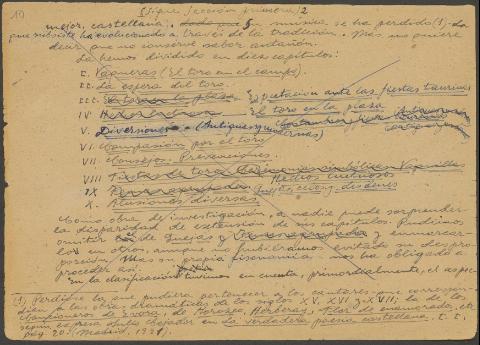 10 (Sigue sección primera) 2
mejor, castellana; su música se ha perdido (1). La
que subsiste ha evolucionado a través de la tradición. Mas no quiere
decir que no conserve sabor antañón.
La hemos dividido en diez capítulos:
I. Vaqueras (El toro en el campo).
II. La espera del toro.
III. Expectación ante las fiestas taurinas
IV El toro en la plaza
V. Diversiones (Antiguas y modernas)
VI. Compasión por el toro
VII. Consejos. Prevenciones.
VIII Hechos luctuosos
IX Quejas, celos y desdenes
X. Alusiones diversas
Como obra de investigación, a nadie puede sorprender
la disparidad de extensión de sus capítulos. Pudimos
omitir el de Quejas y enmarcar-
los en otros, nunca hubiéramos evitado su despro-
porción. Mas su propia fisonomía nos ha obligado a
proceder así.
En la clasificación tuvimos en cuenta, primordialmente, el aspec-
(1) Perdióse la que pudiera pertenecer a los cantares que correspon-
den a las obras dramáticas de los siglos XV, XVI y XVII; la de los
Cancioneros de Evora, de Horozco, Herberay, Flor de enamorados, etc.
según expresa Julio Cejador en La verdadera poesía castellana. t. I.
pág. 20. (Madrid, 1921).